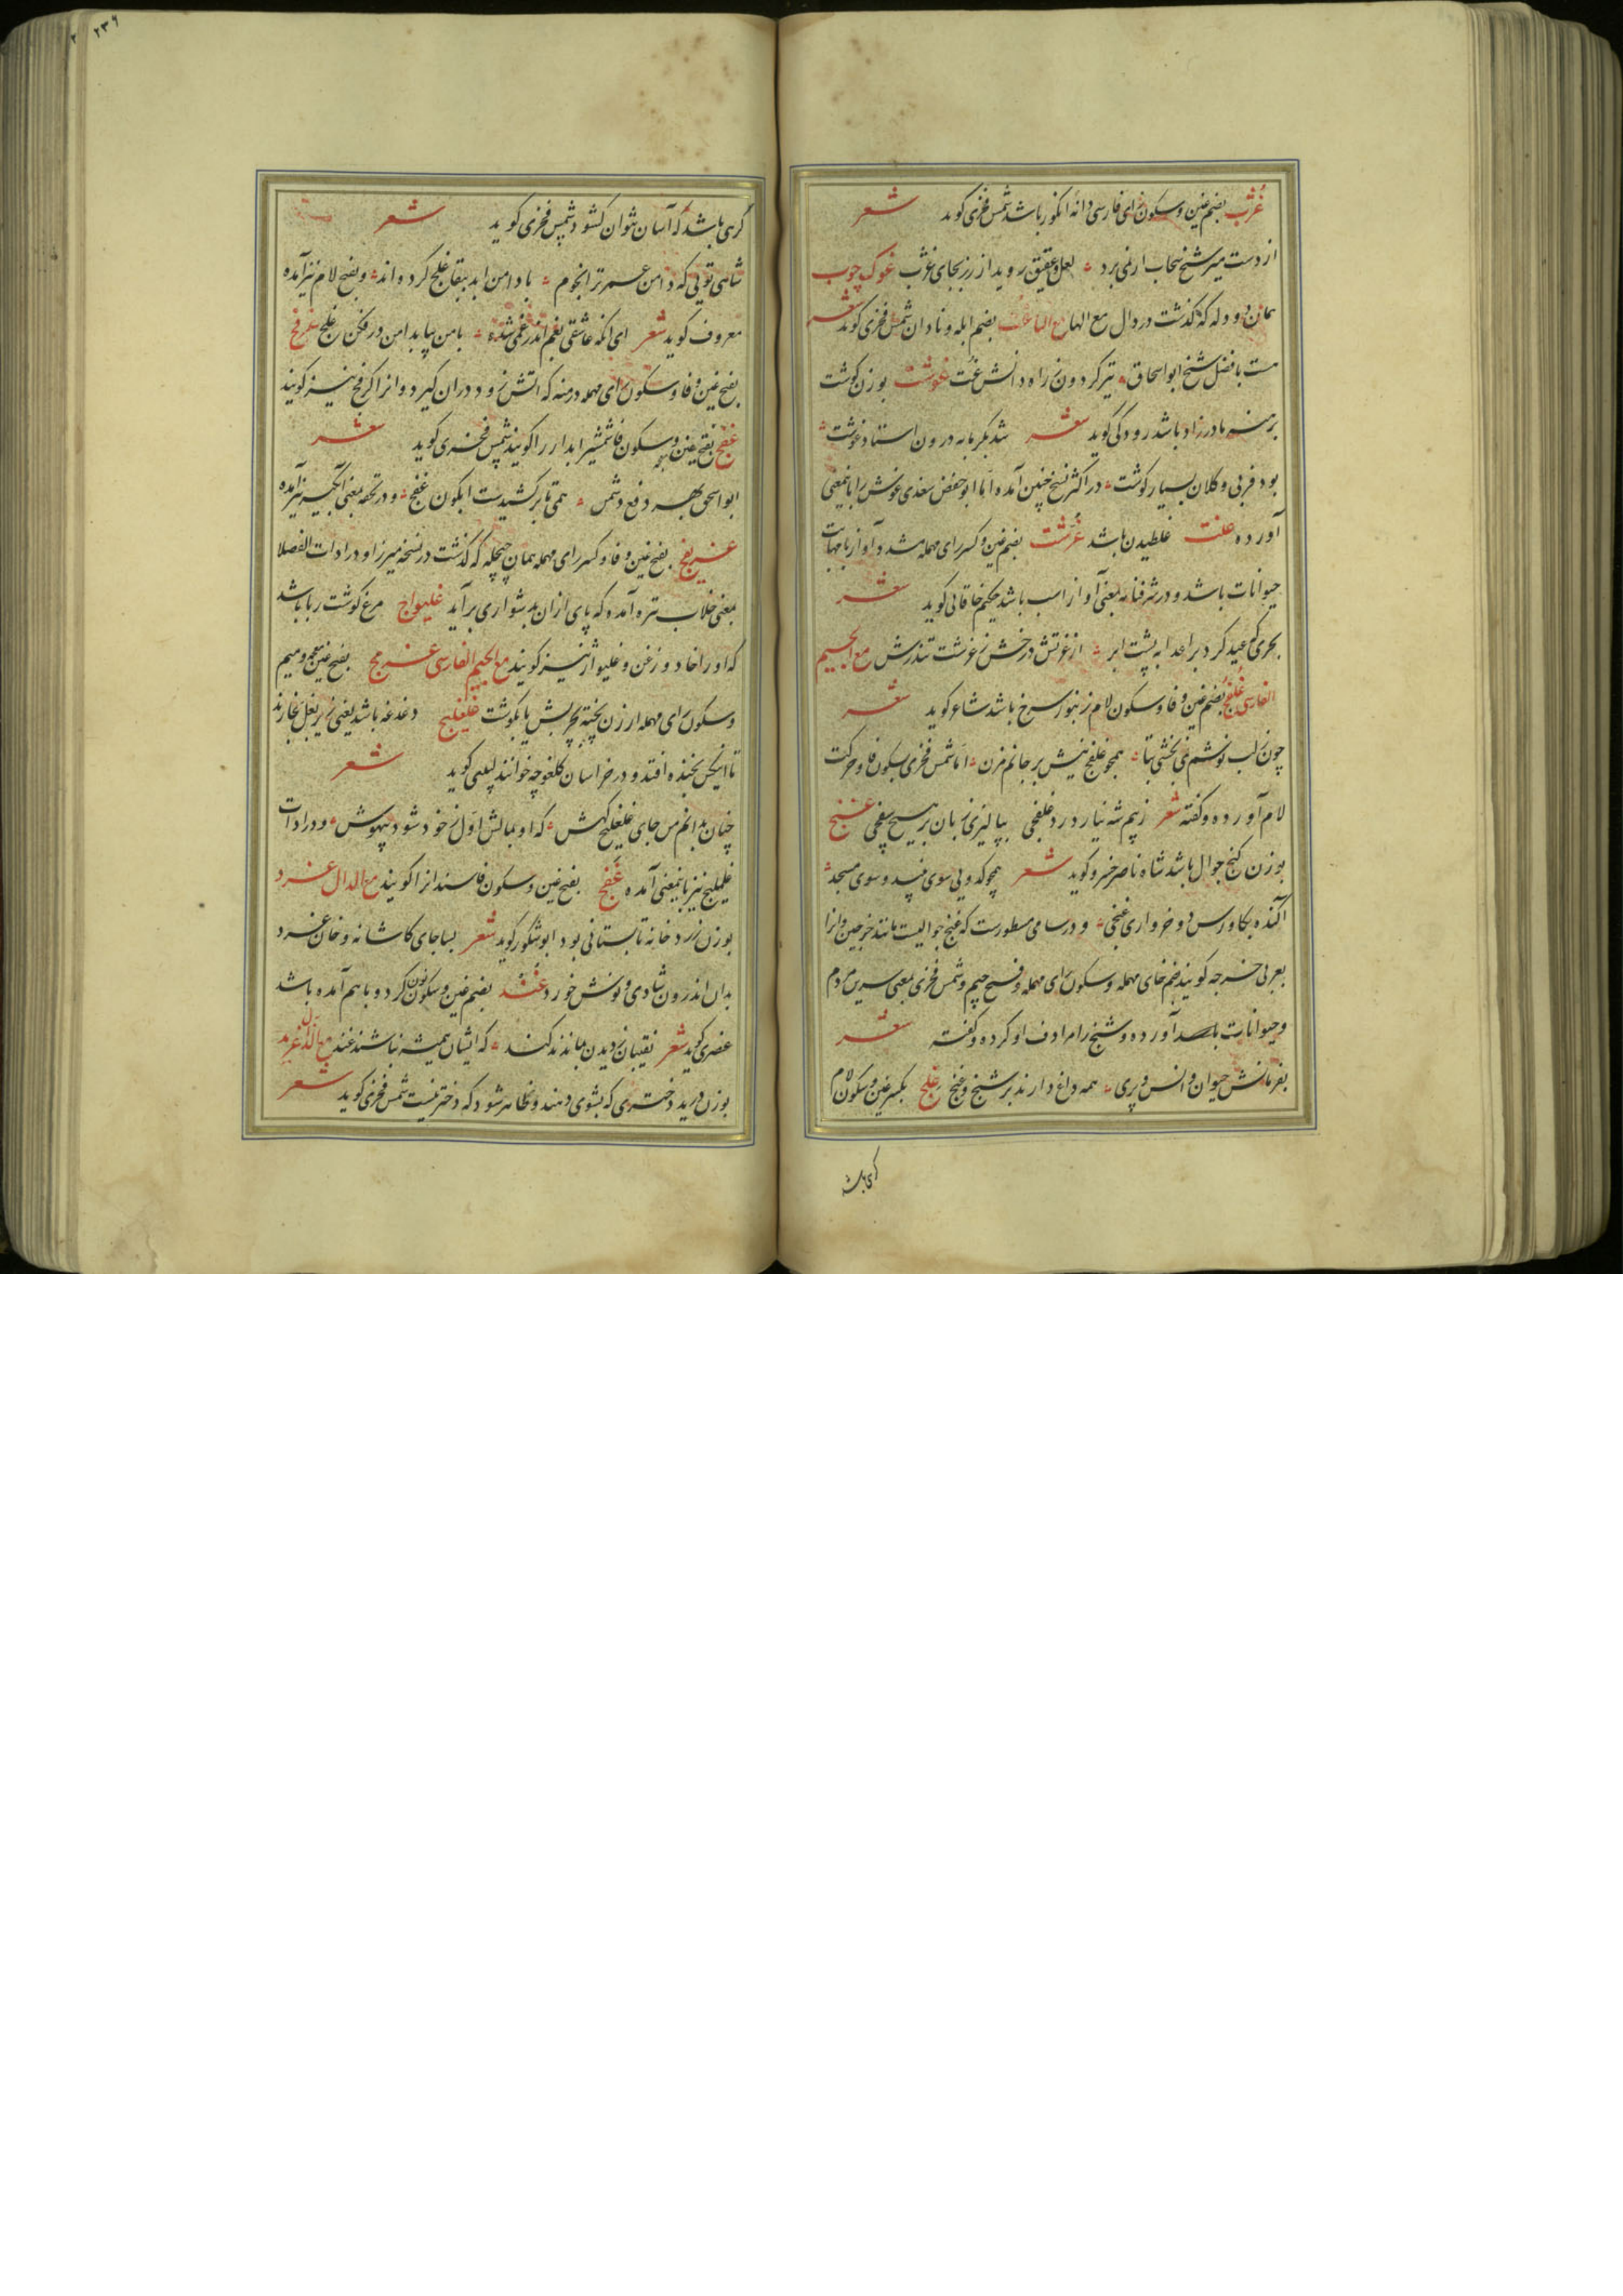 غژب بضم غین و سکون زای فارسی دانه انکور باشد شمس فخری کوید شعر
از دست میر شیخ سحاب ار نمی برد لعل و عقیق روید از رز بجای غژب غوک چوب
همان دو دله که گذشت در دال مع الهاء مع التا غت بضم ابله و نادان شمس فخری کوید شعر
هست با فضل شیخ ابو اسحاق تیر کردون ز راه دانش غت غوشت بوزن کوشت
برهنه مادرزاد باشد رودکی کوید شعر شد بکرمابه درون استاد غوشت
بود فربی و کلان بسیار کوشت در اکثر نسخ چنین آمده اما ابو حفص سغدی غوش را باینمعنی
آورده غلت غلطیدن باشد غرشت بضم غین و کسر رای مهمله مشدد آواز با مهابت
حیوانات باشد و در شرفنامه بمعنی آواز اسب باشد حکیم خاقانی کوید شعر
بحری که عید کرد بر اعدا به پشت ابر از غرتش درخش ز غرشت تندرش مع الجیم
الفارسی غلفج بضم غین و فا و سکون لام زنبور سرخ باشد شاعر کوید شعر
چون لب نوشم نمی بخشی بتا همچو غلفج نیش بر جانم مزن اما شمس فخری بسکون فا و حرکت
لام آورده و کفته شعر ز بیم شه نیارد زد غلفجی بپالیزی زبان بر هیچ سفجی غنج
بوزن کنج جوال باشد شاه ناصر خسرو کوید شعر همچو کدویی سوی نبید و سوی مسجد
آکنده بکاورس دو خرواری غنجی و در سامی مسطورست که غنج جوالیست مانند خرجین و انرا
بعربی خرجه کویند بضم خای مهمله و سکون رای مهمله و فتح جیم و شمس فخری بمعنی سرین مردم
و حیوانات آورده و شنج را مرادف او کرده و کفته شعر
بفرمانش حیوان و انس و پری همه داغ دارند بر شنج و غنج غلج بکسر غین و سکون لام
کرهی باشد
کرهی باشد که آسان نتوان کشود شمس فخری کوید شعر
شاهی تویی که دامن عمر ترا نجوم با دامن ابد ببقا غلج کرده اند و بفتح لام نیز آمده
معروف کوید شعر ای انکه عاشقی بغم اندر غمی شده با من بیا بدامن من در فکن غلج غرفج
بفتح غین و فا و سکون رای مهمله درمنه که اتش زود دران کیرد و انرا کرفج نیز کویند
غفج بفتح غین و سکون فا شمشیر ابدار را کویند شمس فخری کوید شعر
ابو اسحق بهر دفع دشمن همی تا برکشیدست ابکون غفج و در تحفه بمعنی آبکیر نیز آمده
غریفج بفتح غین و فا و کسر رای مهمله همان چچله که گذشت در نسخه میرزا و در ادات الفضلا
بمعنی خلاب تره آمده که پای ازان بدشواری برآید غلیواج مرغ کوشت ربا باشد
که او را خاد و زغن و غلیواژ نیز کویند مع الجیم الفارسی غرمج بفتح غین معجمه و میم
و سکون رای مهمله ارزن پخته چربش یا بکوشت غلغلیج دغدغه باشد یعنی زیر بغل بخارند
تا انکس بخنده افتد و در خراسان کلغوچه خوانند لبیبی کوید شعر
چنان بدانم من جای غلغلیج کهش که او بمالش اول ز خود شود بیهوش و در ادات
غلملیج نیز باینمعنی آمده غفج بفتح غین و سکون فا سندانرا کویند مع الدال غرد
بوزن زرد خانه تابستانی بود ابو شکور کوید شعر بسا جای کاشانه و خان غرد
بدان اندرون شادی و نوش خورد غند بضم غین و سکون نون کرد و با هم آمده باشد
عنصری کوید شعر نقیبان ز دیدن بماندند کند که ایشان همیشه نباشند غند مع الذال غرید
بوزن درید دختری که بشوی دهند و ظاهر شود که دختر نیست شمس فخری کوید شعر
۲۳۶